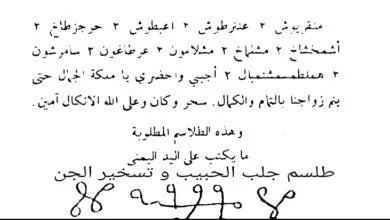 منقريوش ٢ عنترطوش ٢ اعبطوش ٢ حرجزطاخ ٢
أشمخشاخ ٢ مشتماخ ٢ مشلامون ٢ عرطاغون ٢ سامرشون
٢ همططمسمشتمبال ٢ أجيبي واحضري يا ملكة الجمال حتى
يتم زواجنا بالتمام والكمال. سحر وكان وعلى الله الاتكال آمين.
وهذه الطلاسم المطلوبة
ما يكتب على اليد اليمنى
طلسم جلب الحبيب و تسخير الجن